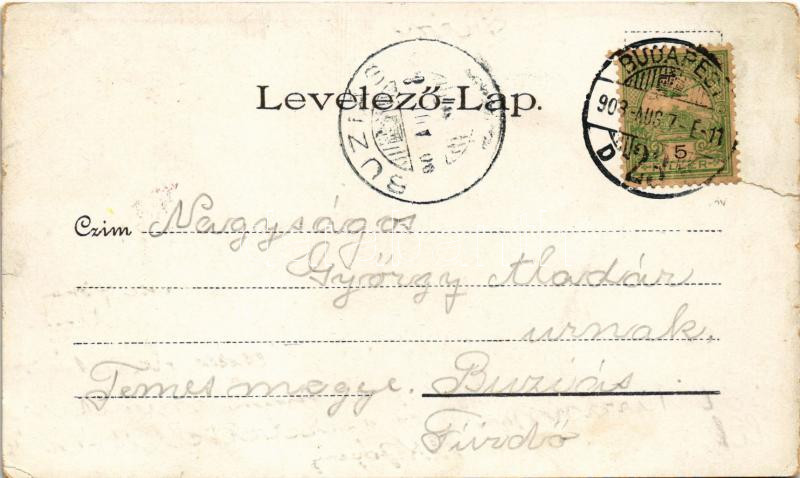 Levelező-Lap.
BUZIÁS
BUDAPEST
903-AUG.7. E-11
D
5
Czim Nagyságos
György Aladár
urnak.
Temes megye. Buziás
Fürdő